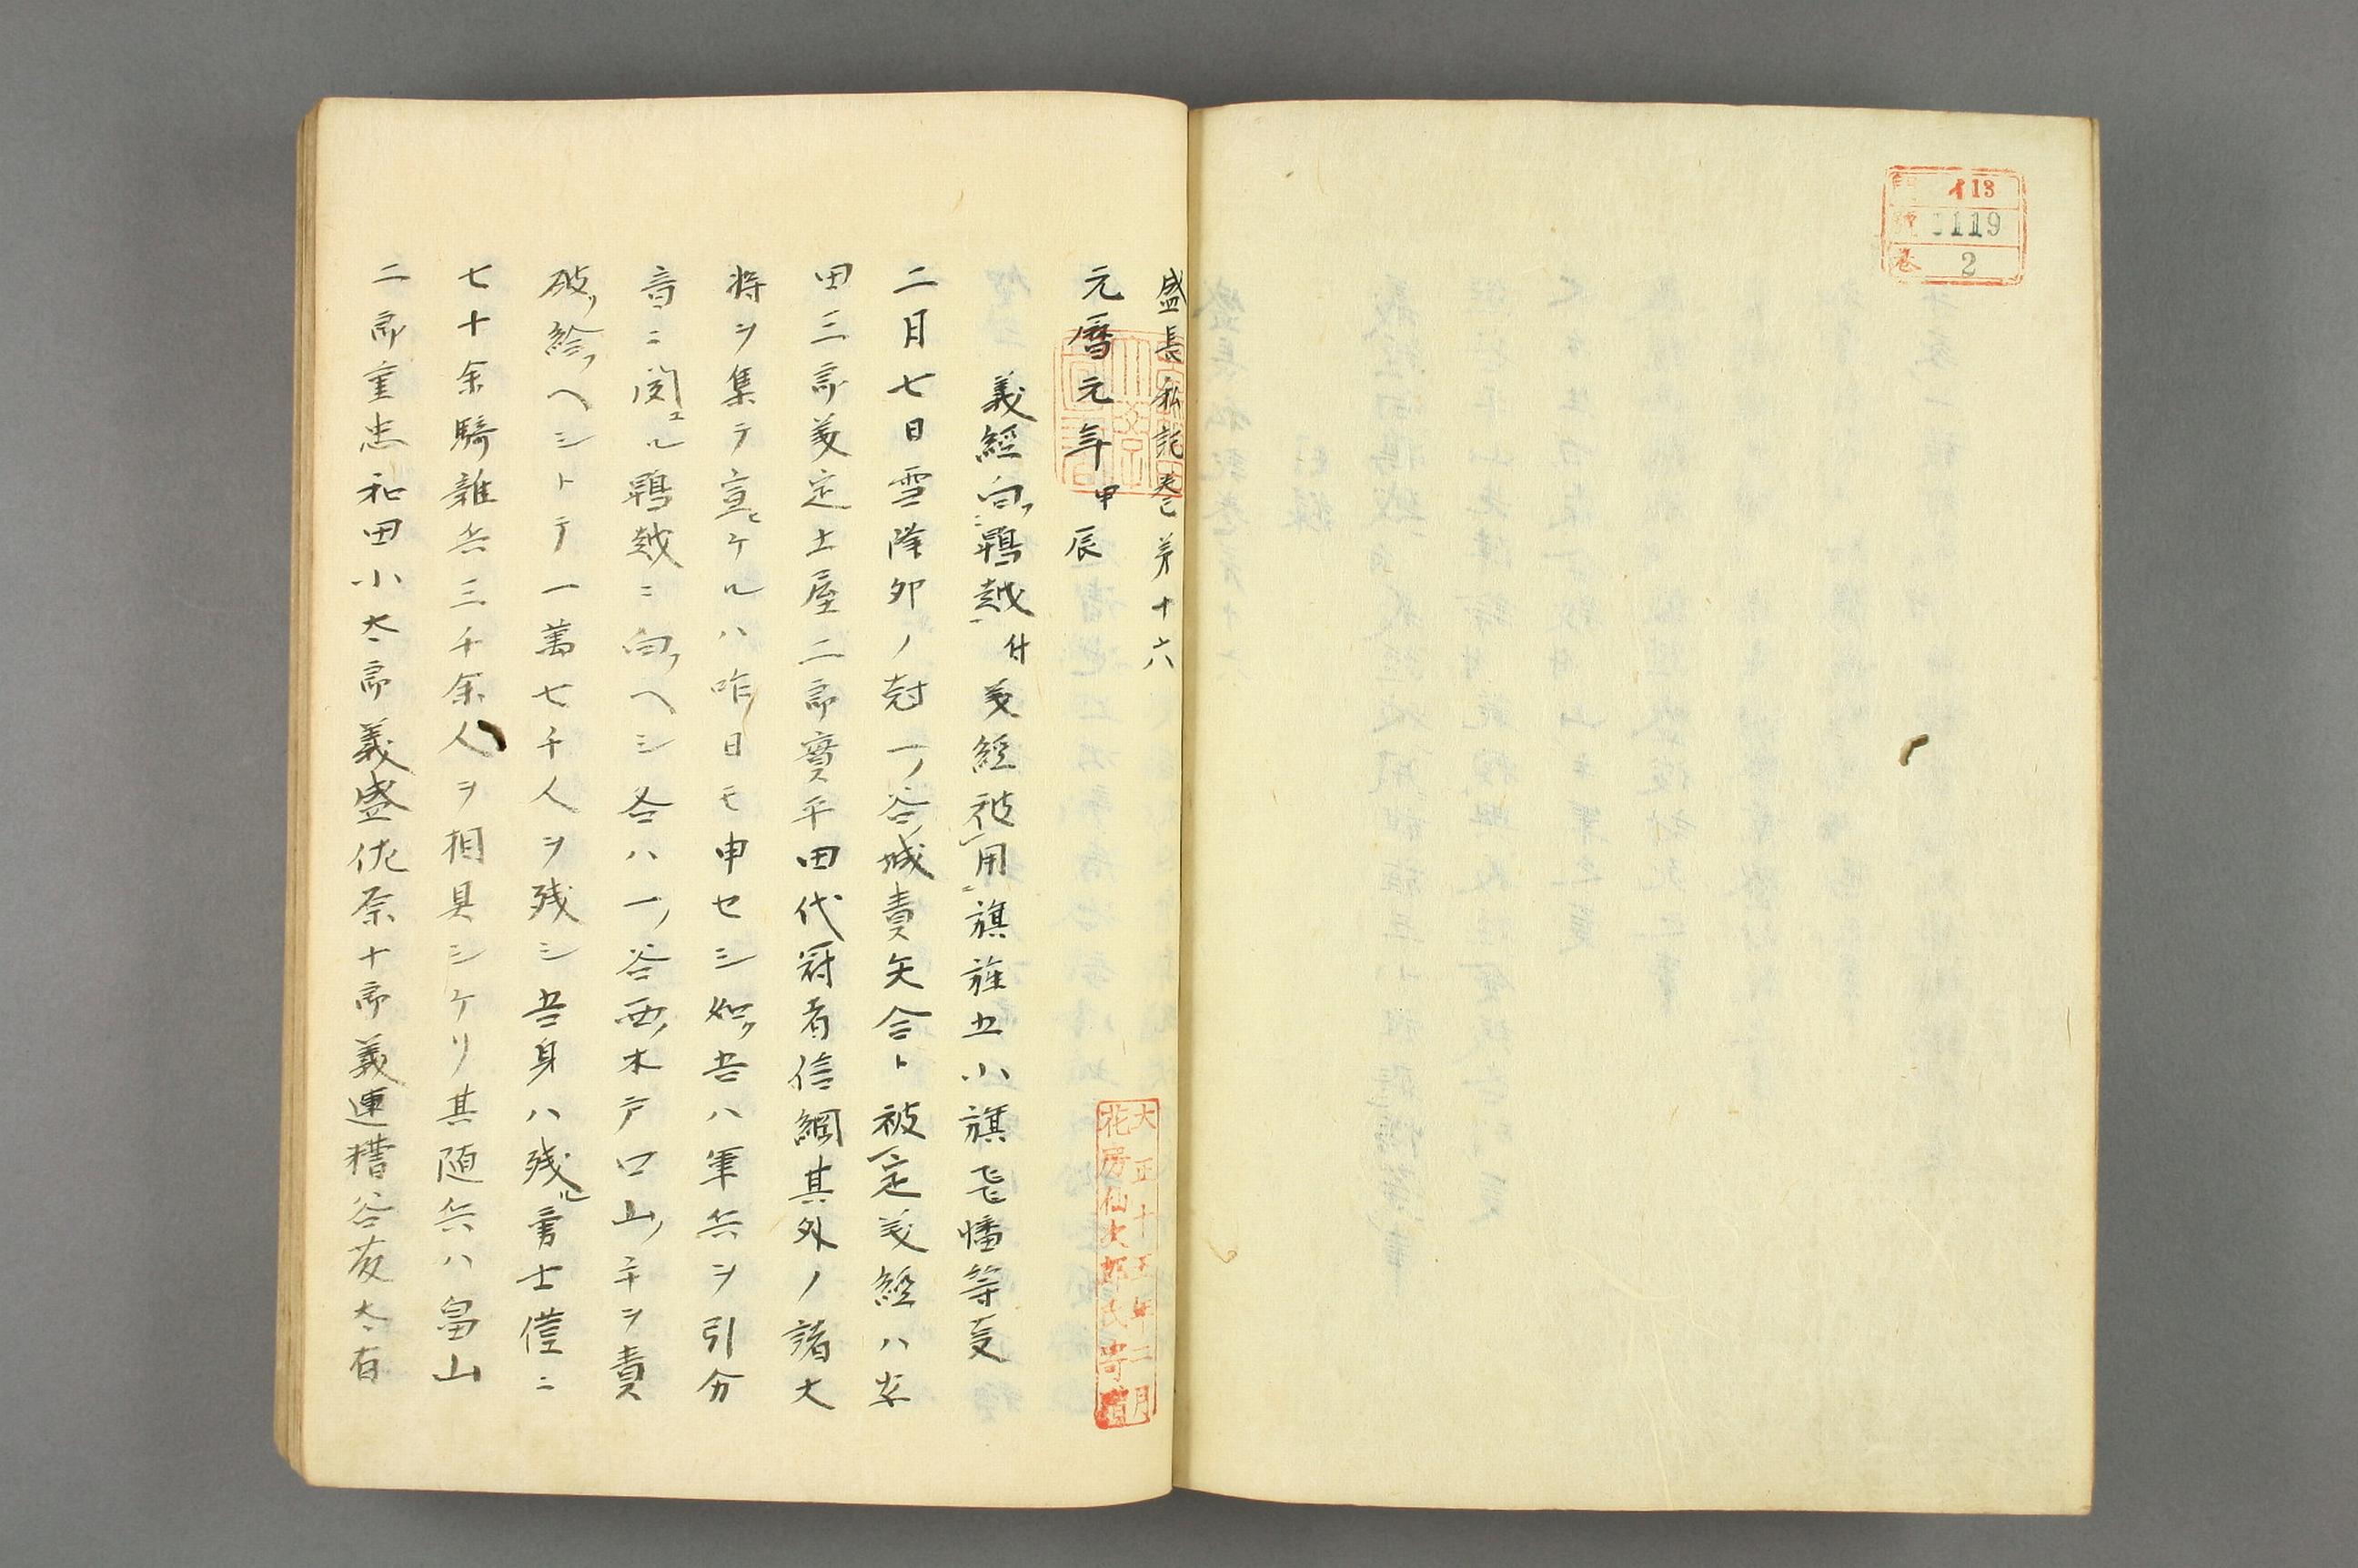 門 113
號 1119
卷 2
盛長私記卷第十六
元暦元年甲辰
義經向フニ鵯越付義經被用ニ旗旌五小旗飛幡等叓
二月七日雪降卯ノ尅一ノ谷城責矢合ト被定義經ハ安
田三郎義定土屋二郎實平田代冠者信綱其外ノ諸大
将ヲ集テ宣ヒケルハ昨日モ申セシ如ク吾ハ軍兵ヲ引分
音ニ聞エル鵯越ニ向フヘシ各ハ一ノ谷西ノ木戸口山ノ手ヲ責
破リ給フヘシトテ一萬七千人ヲ残シ吾身ハ残ル勇士僅ニ
七十余騎雑兵三千余人ヲ相具シケリ其随兵ハ畠山
二郎重忠和田小太郎義盛佐奈十郎義連糟谷藤太有
大正十五年二月
花房仙次郎氏寄贈